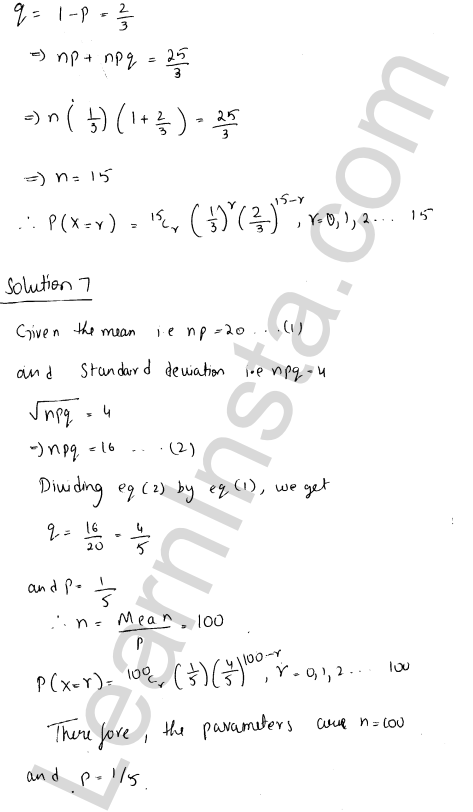 q = 1-p = 2/3
⇒ np + npq = 25/3
⇒ n (1/3) (1 + 2/3) = 25/3
⇒ n = 15
∴ P(X=r) = ¹⁵Cᵣ (1/3)^r (2/3)^(15-r), r=0,1,2... 15
Solution 7
Given the mean i.e np = 20 ...(1)
and Standard deviation i.e npq = 4
√npq = 4
⇒ npq = 16 ....(2)
Dividing eq (2) by eq (1), we get
q = 16/20 = 4/5
and P = 1/5
∴ n = Mean/p = 100
P(x=r) = ¹⁰⁰Cᵣ (1/5) (4/5)^(100-r), r = 0,1,2... 100
Therefore, the parameters are n=100
and p = 1/5.
LearnInsta.com